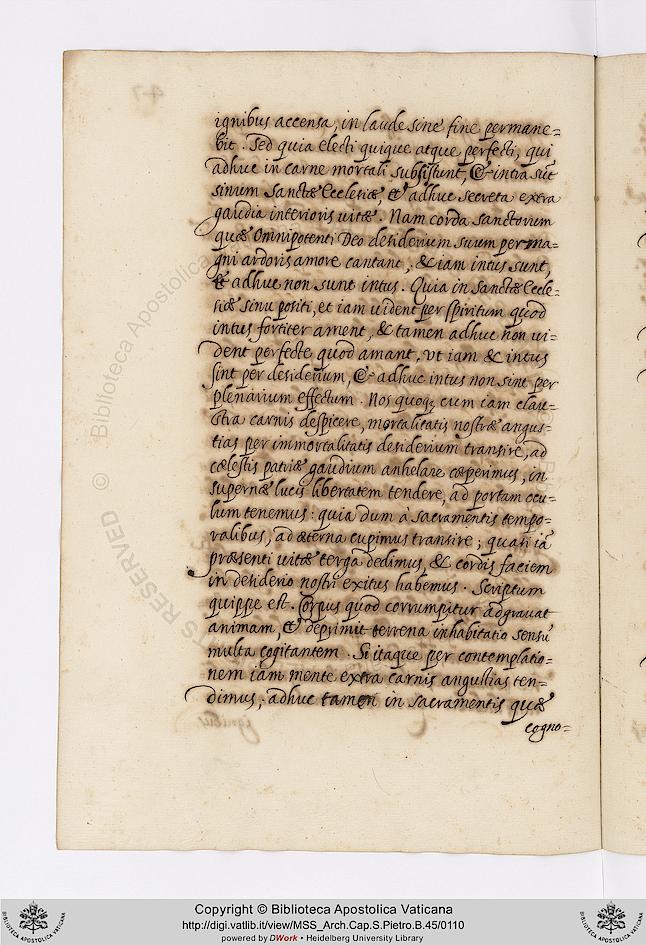 ignibus accensa, in laude sine fine permane=
bit. Sed quia electi quique atque perfecti, qui
adhuc in carne mortali subsistunt, & intra sūt
sinum Sanctæ Ecclesiæ, et adhuc secreta extra
gaudia interioris uitæ. Nam corda Sanctorum
quæ Omnipotenti Deo desiderium suum per ma=
gni ardoris amore cantant, & iam intus sunt,
& adhuc non sunt intus. Quia in Sanctæ Eccle=
siæ sinu positi, et iam uident per spiritum quod
intus fortiter ament, & tamen adhuc non ui=
dent perfecte quod amant, vt iam & intus
sint per desiderium, & adhuc intus non sint per
plenarium effectum. Nos quoq; cum iam clau=
stra carnis despicere, mortalitatis nostræ angus=
tias per immortalitatis desiderium transire, ad
cælestis patriæ gaudium anhelare cæperimus, in
supernæ lucis libertatem tendere, ad portam ocu=
lum tenemus: quia dum à sacramentis tempo=
ralibus, ad æterna cupimus transire; quasi iā
præsenti uitæ terga dedimus, & cordis faciem
in desiderio nostri exitus habemus. Scriptum
quippe est. Corpus quod corrumpitur adgrauat
animam, et deprimit terrena inhabitatio sensū
multa cogitantem. Si itaque per contemplatio=
nem iam mente extra carnis angustias ten=
dimus, adhuc tamen in sacramentis quæ
cogno=
© Biblioteca Apostolica
RESERVED
Copyright © Biblioteca Apostolica Vaticana
http://digi.vatlib.it/view/MSS_Arch.Cap.S.Pietro.B.45/0110
powered by DWork • Heidelberg University Library